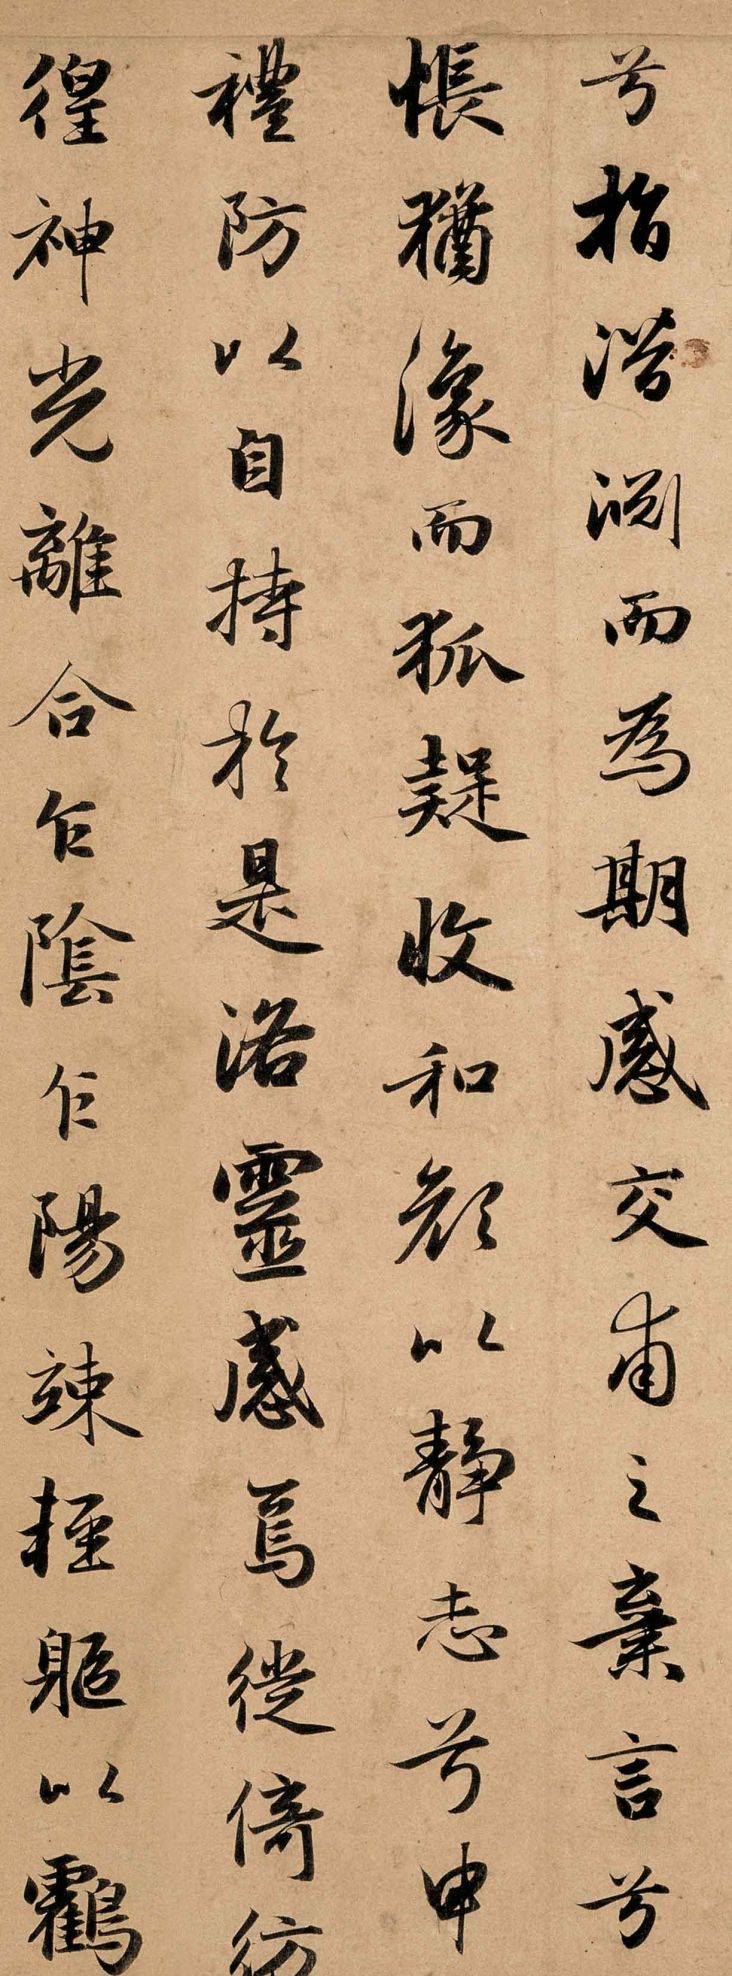 兮指潛淵而為期感交甫之棄言兮
悵猶㵮而狐疑收和顏以静志兮申
禮防以自持於是洛靈感焉徙倚彷
徨神光離合乍陰乍陽竦輕軀以鶴